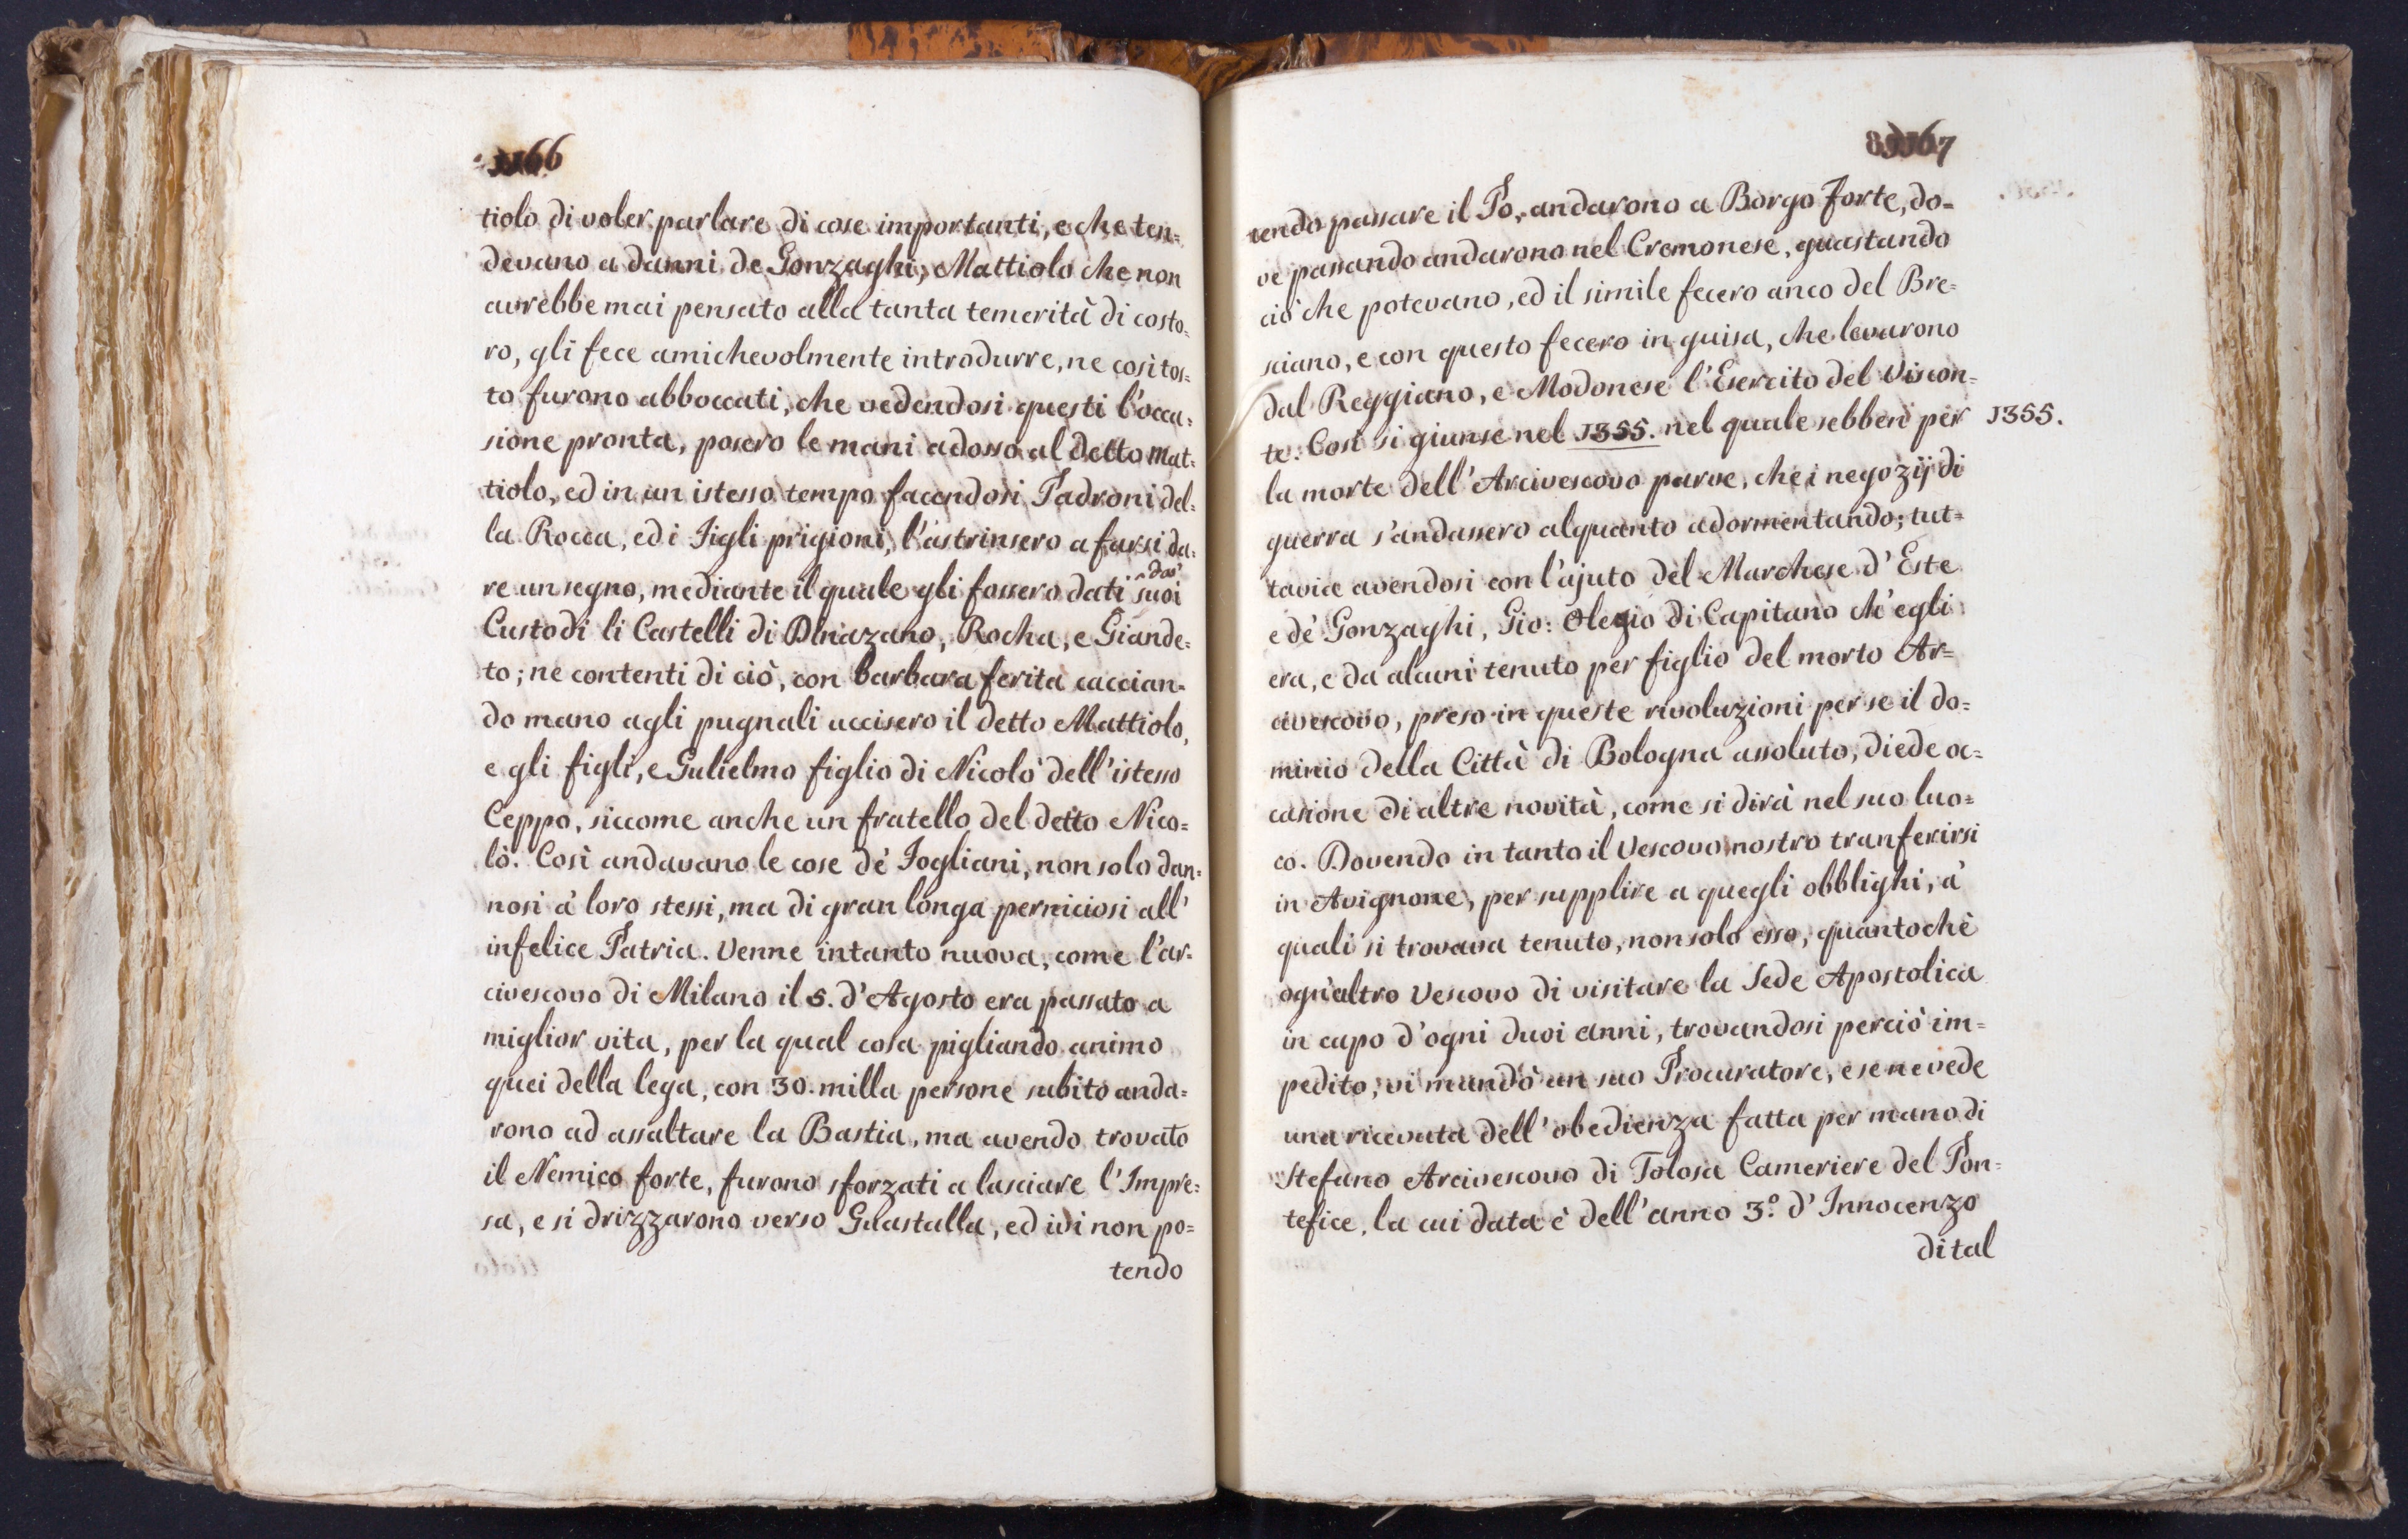 66
tiolo di voler parlare di cose importanti, e che ten=
devano a danni de Gonzaghi; Mattiolo che non
avrebbe mai pensato alla tanta temerità di costo=
ro, gli fece amichevolmente introdurre, ne così tos=
to furono abboccati, che vedendosi questi l'occa=
sione pronta, posero le mani adosso al detto Mat=
tiolo, ed in un istesso tempo facendosi Padroni del=
la Rocca, ed i Figli prigioni, l'astrinsero a farsi da=
re un segno, mediante il quale gli fossero dati ^da^ suoi
Custodi li Castelli di Dinazano, Rocha, e Giande=
to; ne contenti di ciò, con barbara ferita caccian=
do mano agli pugnali uccisero il detto Mattiolo,
e gli figli, e Gulielmo figlio di Nicolò dell'istesso
Ceppo, siccome anche un fratello del detto Nico=
lò. Così andavano le cose de' Fogliani, non solo dan=
nosi à loro stessi, ma di gran longa perniciosi all'
infelice Patria. Venne intanto nuova, come l'ar=
civescovo di Milano il 5. d'Agosto era passato a
miglior vita, per la qual cosa pigliando animo
quei della lega, con 30. milla persone subito anda=
rono ad assaltare la Bastia, ma avendo trovato
il Nemico forte, furono sforzati a lasciare l'Impre=
sa, e si drizzarono verso Guastalla, ed ivi non po=
tendo
67
tendo passare il Po, andarono a Borgo forte, do=
ve passando andarono nel Cremonese, guastando
ciò che potevano, ed il simile fecero anco del Bre=
sciano, e con questo fecero in guisa, che levarono
dal Reggiano, e Modonese l'Esercito del Viscon=
te. Così si giunse nel 1355. nel quale sebbene per
1355.
la morte dell'Arcivescovo parve, che i negozij di
guerra s'andassero alquanto adormentando; tut=
tavia avendosi con l'ajuto del Marchese d'Este
e de' Gonzaghi, Gio: Olegio di Capitano ch'egli
era, e da alcuni tenuto per figlio del morto Ar=
civescovo, preso in queste rivoluzioni per se il do=
minio della Città di Bologna assoluto, diede oc=
casione di altre novità, come si dirà nel suo luo=
co. Dovendo in tanto il Vescovo nostro tranferirsi
in Avignone, per supplire a quegli obblighi, a'
quali si trovava tenuto, non solo esso, quantochè
ogn'altro Vescovo di visitare la Sede Apostolica
in capo d'ogni duoi anni, trovandosi perciò im=
pedito, vi mandò un suo Procuratore, e se ne vede
una ricevuta dell'obedienza fatta per mano di
Stefano Arcivescovo di Tolosa Cameriere del Pon=
tefice, la cui data è dell'anno 3.° d'Innocenzo
di tal